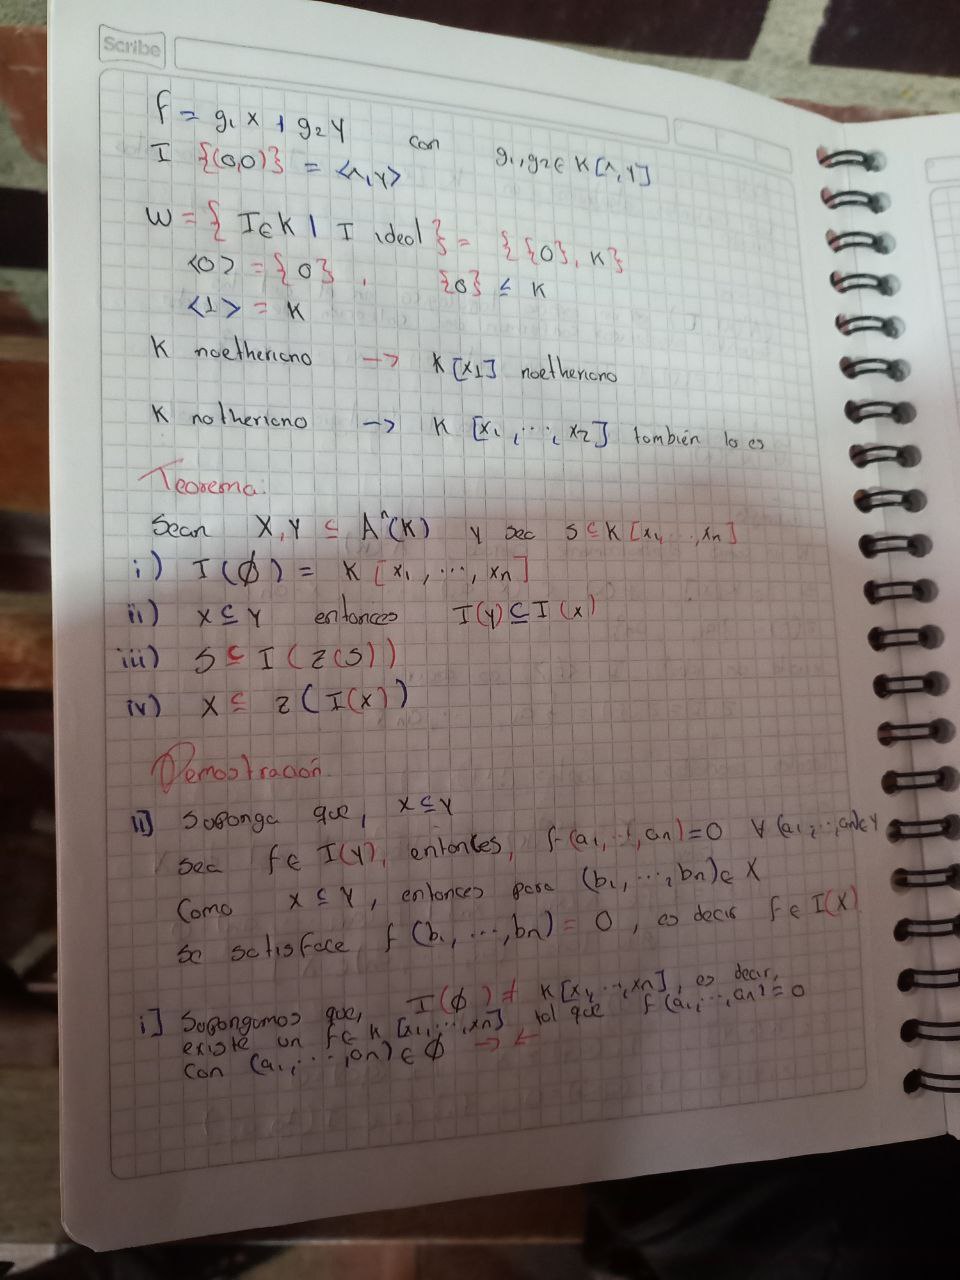 Scribe
f = g₁ x + g₂ y con g₁, g₂ ∈ K[x, y]
I {(0,0)} = <x, y>
W = { I ⊆ K | I ideal } = { {0}, K}
<0> = {0} , {0} ≤ K
<1> = K
K noetheriano → K [x1] noetheriano
K notheriano → K [x₁, ..., x₂] también lo es
Teorema.
Sean X, Y ⊆ Aⁿ(K) y sea S ⊆ K [x₁, ..., xn]
i) I(∅) = K [x₁, ..., xn]
ii) X ⊆ Y entonces I(Y) ⊆ I(X)
iii) S ⊆ I(Z(S))
iv) X ⊆ Z(I(X))
Demostración.
ii] Suponga que, X ⊆ Y
sea f ∈ I(Y), entonces, f(a₁, ..., an) = 0 ∀ (a₁, ..., an) ∈ Y
Como X ⊆ Y, entonces para (b₁, ..., bn) ∈ X
se satisface f(b₁, ..., bn) = 0, es decir f ∈ I(X)
i] Supongamos que, I(∅) ≠ K[x₁, ..., xn], es decir,
existe un f ∈ K [x₁, ..., xn] tal que f(a₁, ..., an) = 0
con (a₁, ..., an) ∈ ∅ → ←